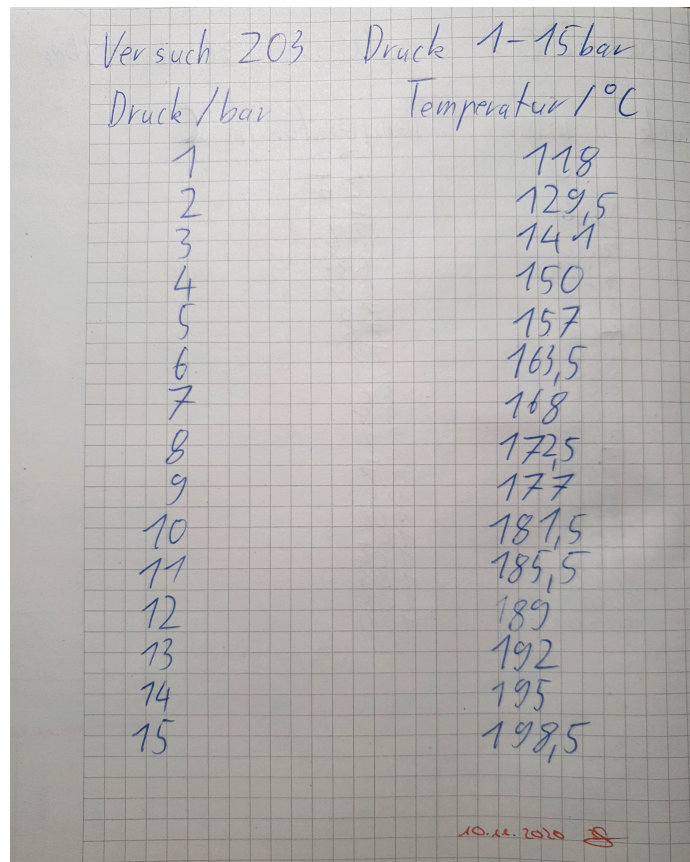 Versuch 203 Druck 1-15bar
Druck/bar Temperatur/°C
1 118
2 129,5
3 141
4 150
5 157
6 163,5
7 168
8 172,5
9 177
10 181,5
11 185,5
12 189
13 192
14 195
15 198,5
10.11.2020